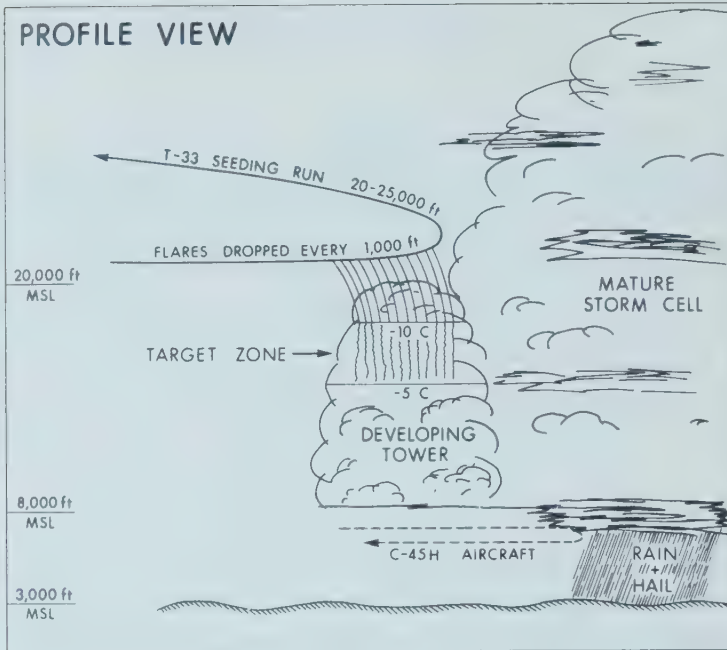 PROFILE VIEW
T-33 SEEDING RUN 20-25,000 ft
FLARES DROPPED EVERY 1,000 ft
20,000 ft
MSL
MATURE
STORM CELL
-10 C
TARGET ZONE
-5 C
DEVELOPING
TOWER
8,000 ft
MSL
C-45H AIRCRAFT
RAIN
+
HAIL
3,000 ft
MSL